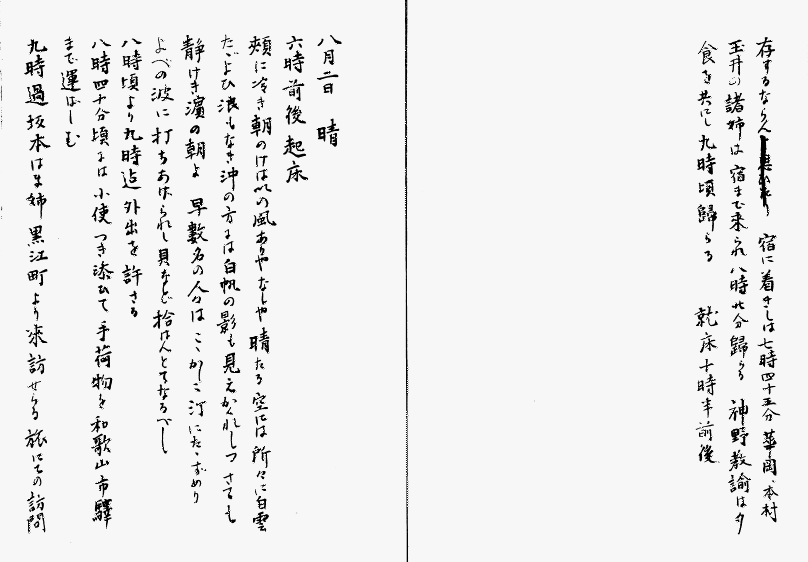 存するならん 宿に着きしは七時四十五分 華岡、本村
玉井の諸姉は宿まで来られ八時廿分歸らる 神野教諭は夕
食を共にし九時頃歸らる 就床十時半前後
八月二日 晴
六時前後起床
頰に冷き朝のけはひの風ありやなしや晴たる空には所々に白雲
たゞよひ浪もなき沖の方には白帆の影も見えかくれしつ さても
静けき濱の朝よ 早數名の人々はこゝかしこ汀にたゝずめり
よべの波に打ちあげられし貝などを拾はんとてなるべし
八時頃より九時迄外出を許さる
八時四十分頃には小使つき添ひて手荷物を和歌山市驛
まで運ばしむ
九時過坂本はま姉黒江町より來訪せらる 旅にての訪問